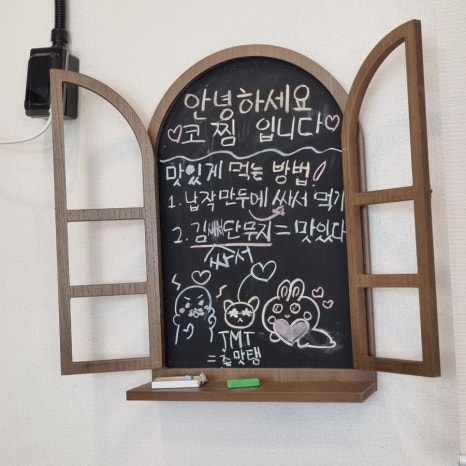 안녕하세요
코찜 입니다
맛있게 먹는 방법!
1. 납작만두에 싸서 먹기
2. 김 단무지 = 맛있다
싸서
TMT
= 존맛탱